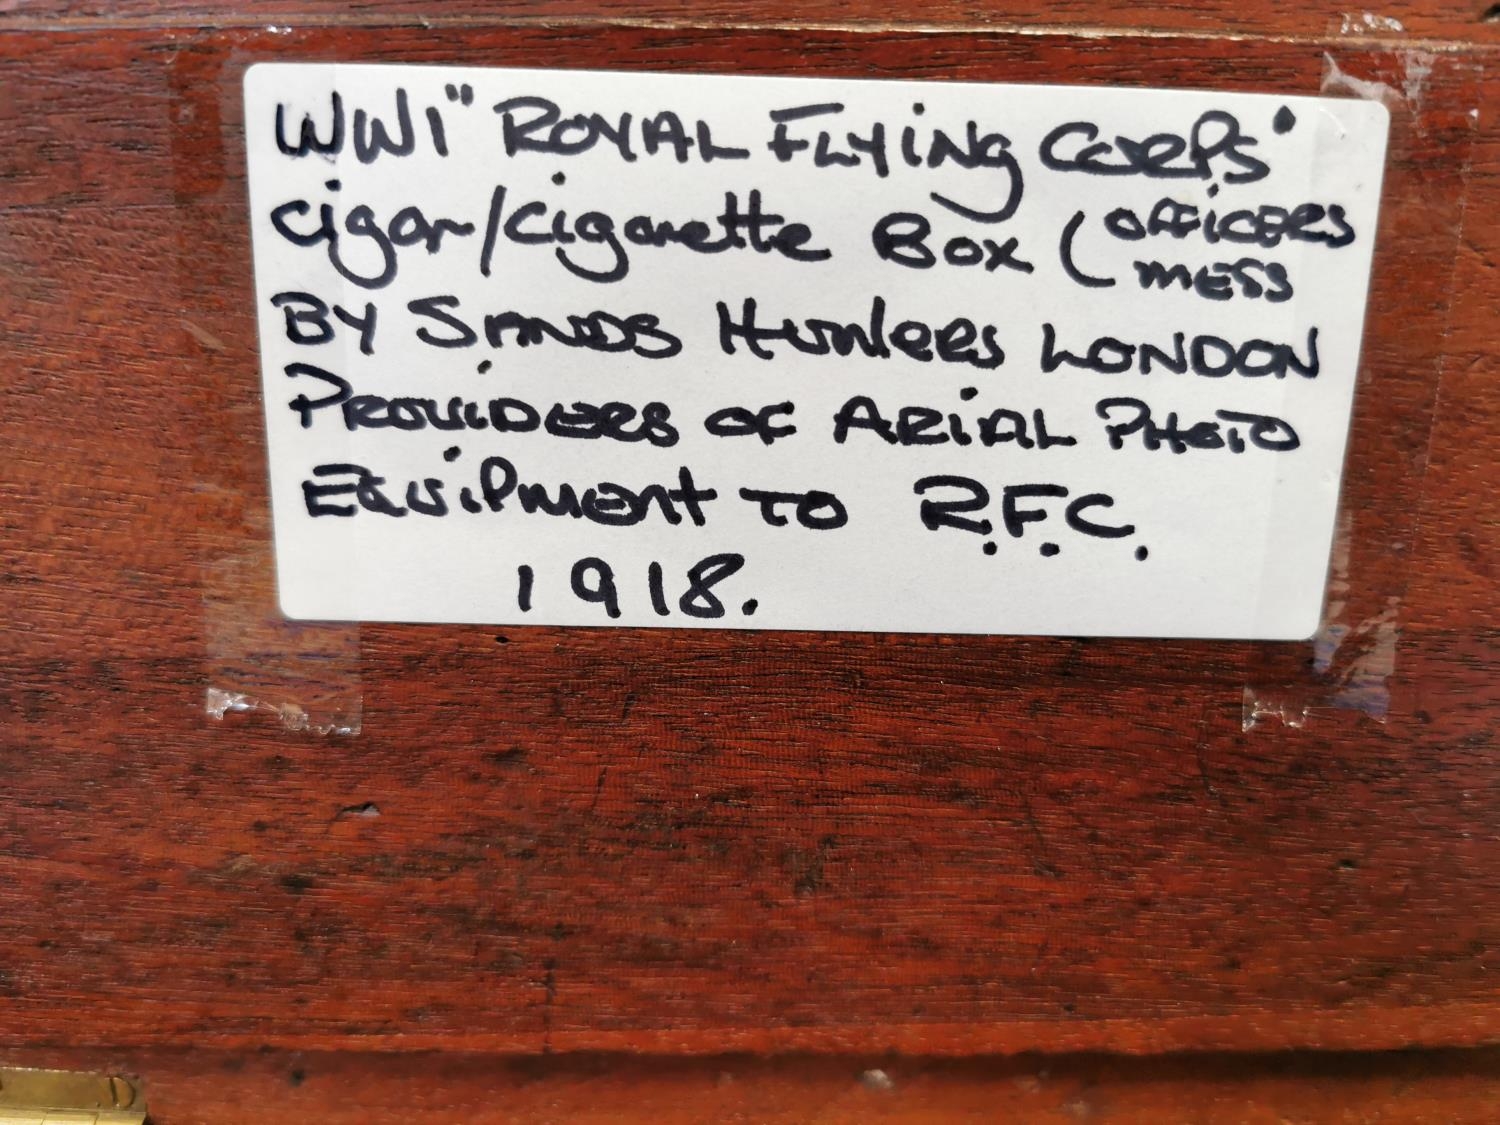 WW1 "ROYAL FLYING CORPS"
Cigar/Cigarette Box (OFFICERS MESS
BY SANDS HUNTERS LONDON
PROVIDERS OF ARIAL PHOTO
EQUIPMENT TO R.F.C.
1918.